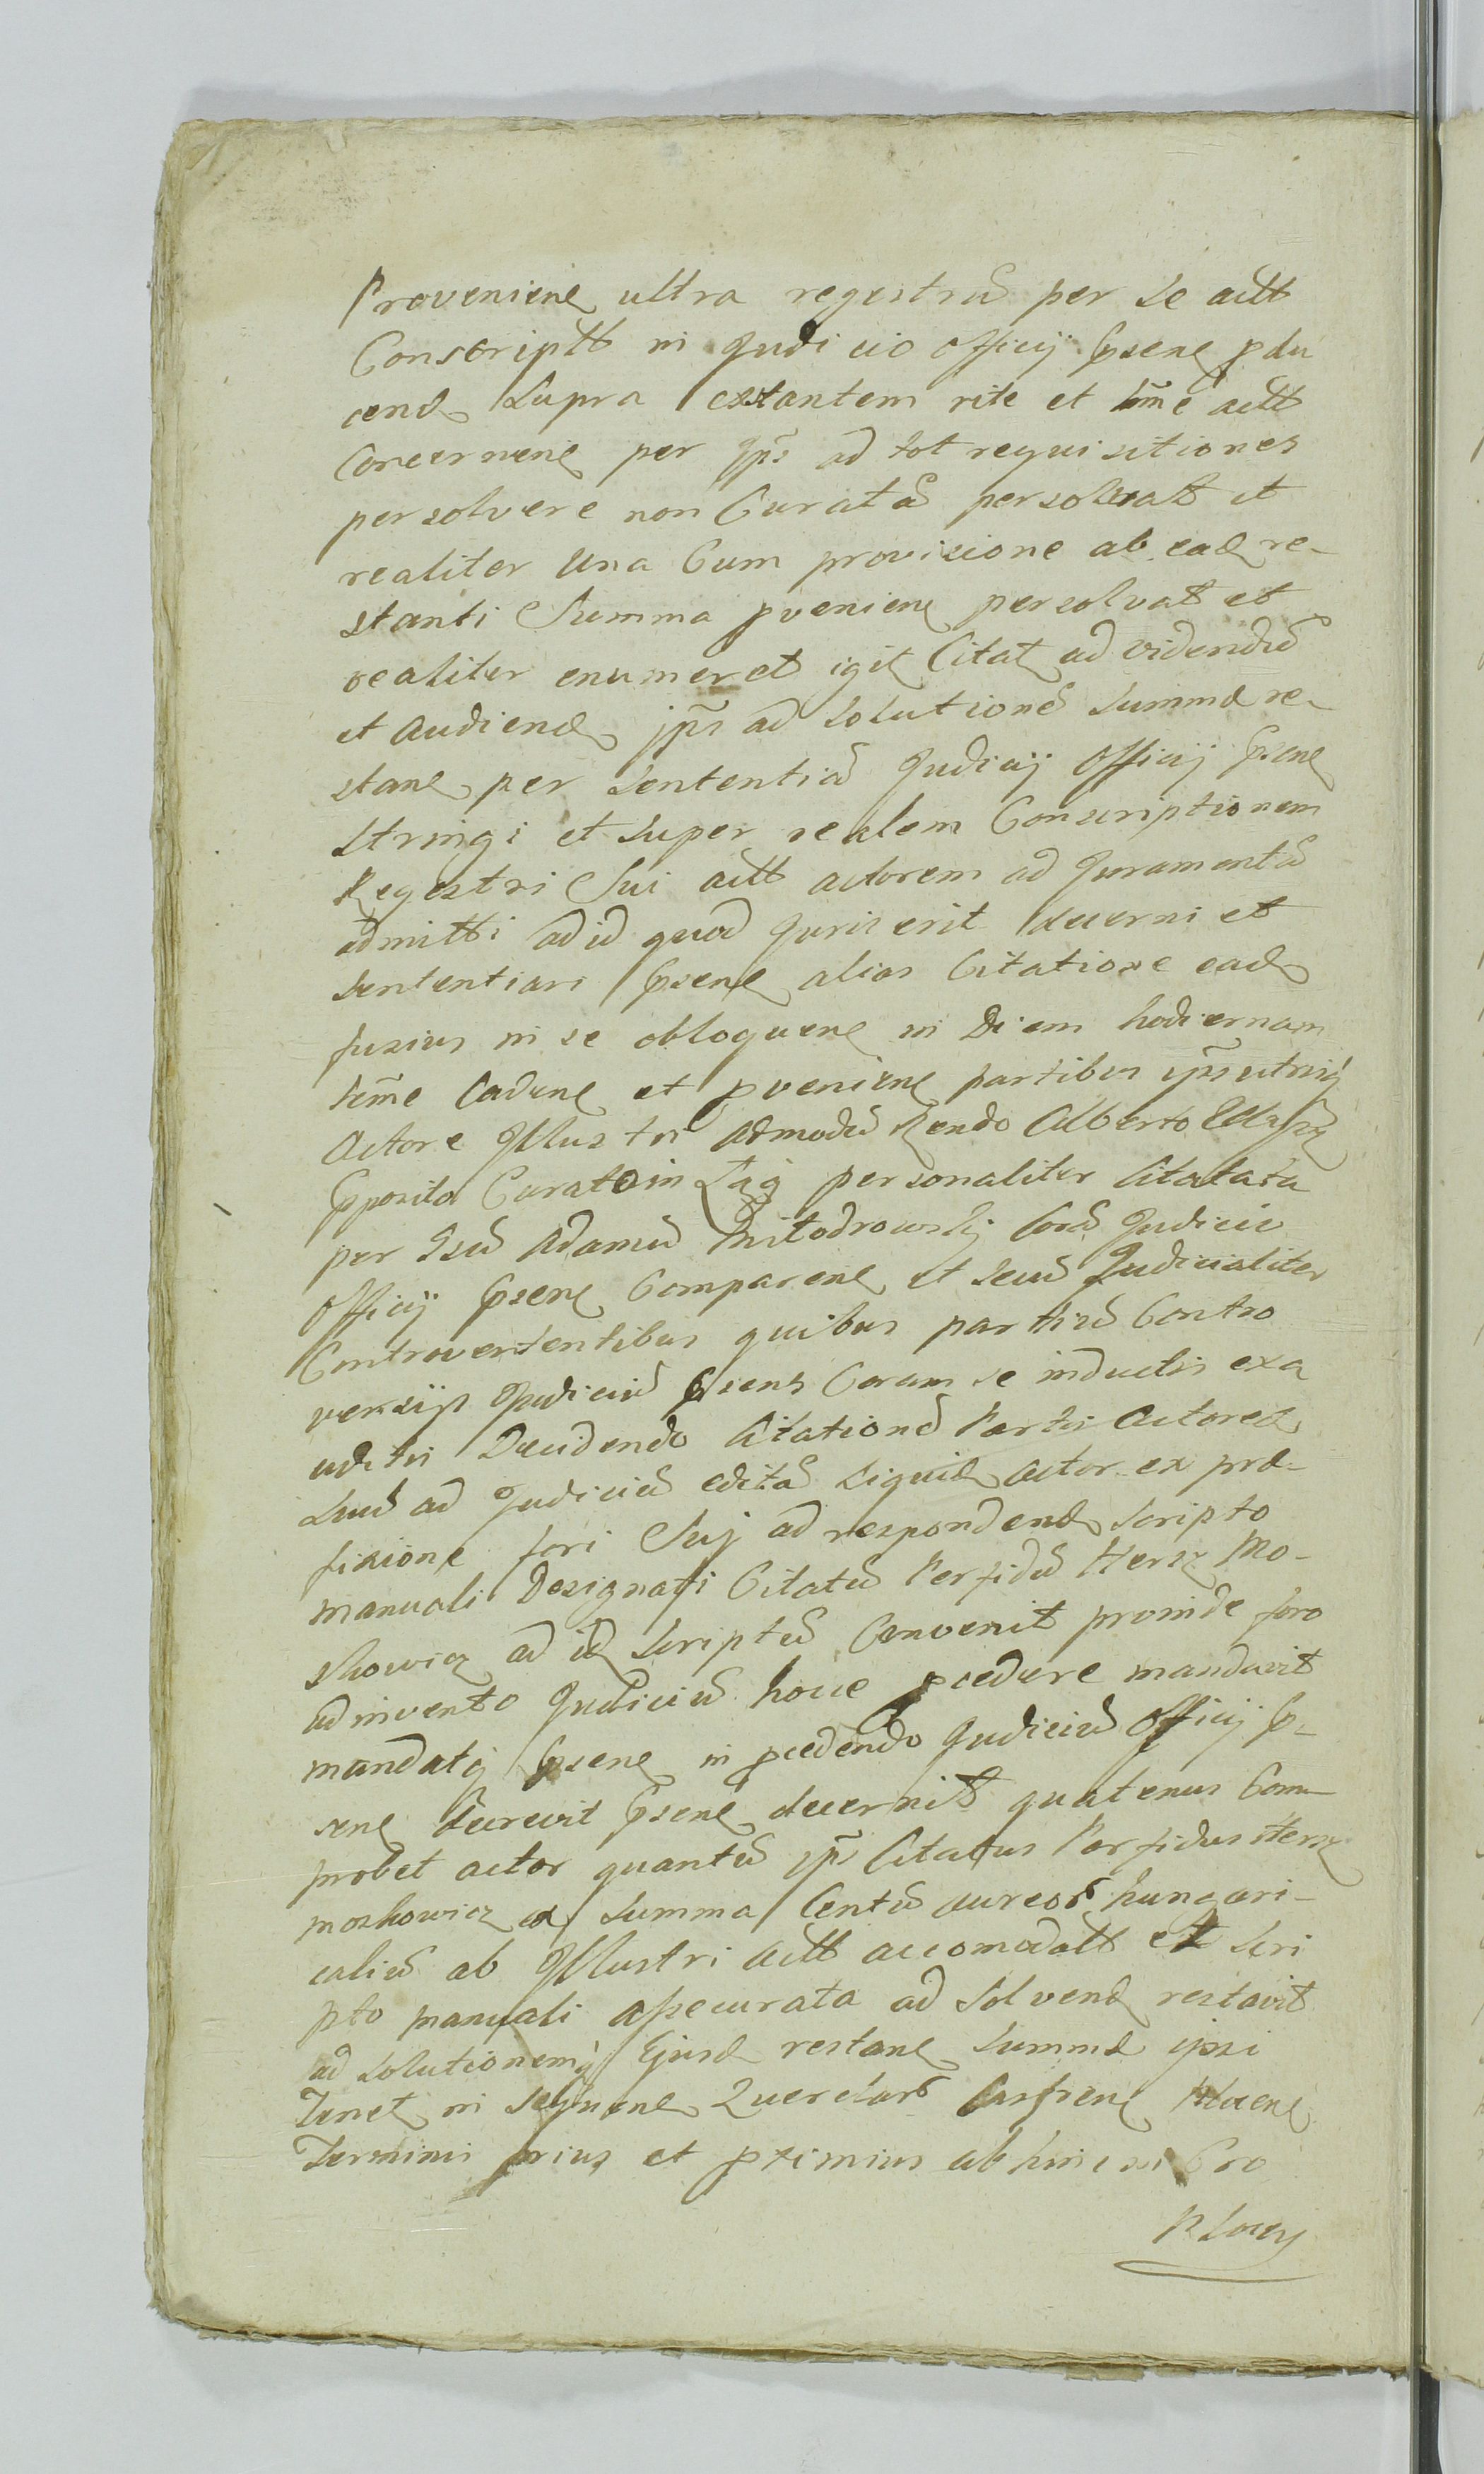 Provenien ultra regestrũ per se actt
Conscriptt in Judicio officij psen pdu
cend Supra extantem rite et ttme actt
Concernen per ips ad tot requisitiones
persolvere non Curatã persolvat et
realiter Una Cum provisione ab ead re-
stanti Summa pvenien persolvat et
realiter enumeret igit Citat ad videndũ
et audiend ips ad solutionẽ summæ re-
stan per sententiã Judicij officij psen
stringi et super realem Conscriptionem
Regestri Sui actt actorem ad Juramentũ
admitti ad id quod Juris erit decerni et
sententiari psen alias Citatione ead
fusius in se obloquen in Diem hodiernam
ttme Caden et pvenien partibus ips utrisq
Actore Illustri admodũ Rendo Alberto
pposito Curato in personaliter Citatata
per Gsũ Adamũ Corã Judicio
Officij psen Comparen et secũ Judicialiter
Controvertentibus quibus partiũ Contro
versijs Judiciũ psens Coram se inductis exa
uditis Decidendo Citationẽ Partis Actoreæ
suũ ad Judiciũ editã Siquid actor ex præ-
fixione fori Suj ad respondend scripto
manuali Designati Citatũ Perfidũ Hersz Mo-
szkowicz ad id scriptũ Convenit proinde foro
adinvento Judiciũ hocce pcedere mandavit
mandatq psen in pcedendo Judiciũ Officij p-
sen decrevit psen decernit quatenus Com-
probet actor quantũ ips Citatus Perfidus Hersz
moszkowicz ex summa Centũ aureor hungari-
caliũ ab Illustri actt accomodatt et scri
pto manuali assecurata ad solvend restavit
ad solutionemq Ejusd restan summæ ipsi
Tenet in seqnen Querelar
Termini prius et pximius abhinc in Cro